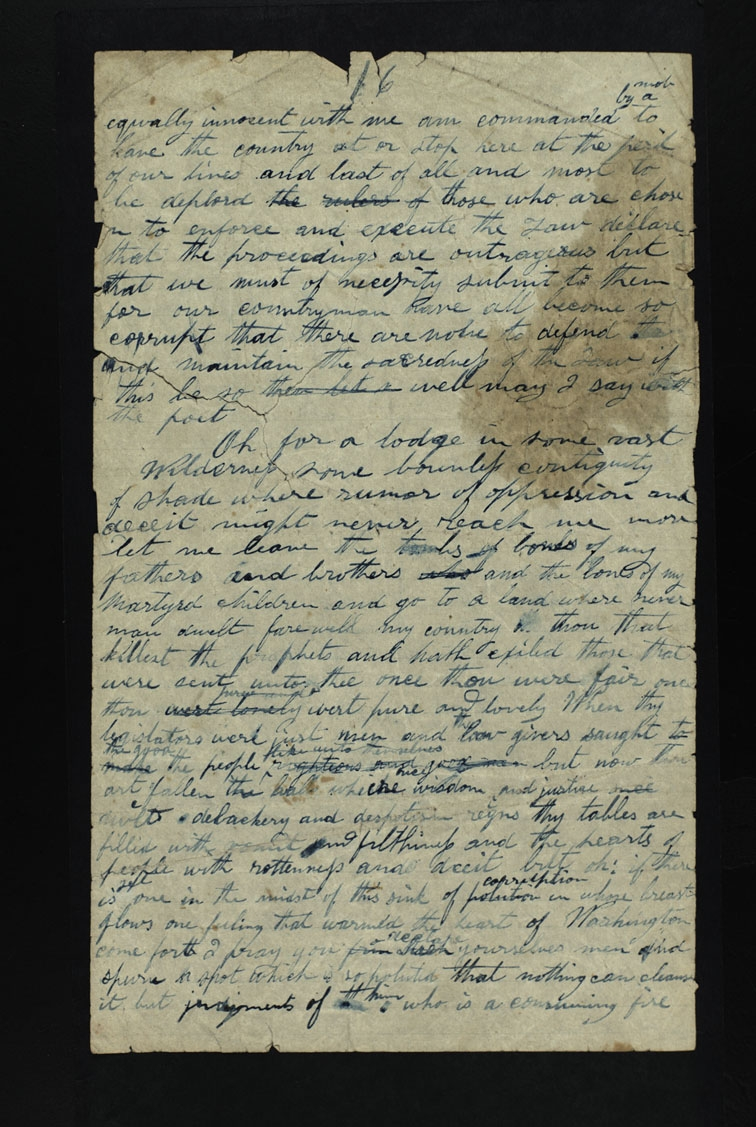 16
mob
by a
equally innocent with me am commanded to
leave the country at or stop here at the peril
of our lives and last of all and most to
be deplord the rulers of those who are chose
n to enforce and execute the Law declare
that the proceedings are outrageous but
that we must of necessity submit to them
for our countryman have all become so
corrupt that there are none to defend the
and maintain the sacredness of the Law if
this be so then let a well may I say with
the poet
Oh for a lodge in some vast
Wilderness some bounless contiguity
of shade where rumor of oppression and
deceit might never reach me more
let me leave the tombs of bones of my
fathers and brothers and the bones of my
martyrd children and go to a land where never
man dwelt farewell my country thou that
killest the prophets and hath exiled those that
were sent unto thee once thou were fair once
thou were lovely wert pure and lovely When thy
legislators were just men and thy law givers saught to
the good like unto themselves
make the people rightious and good men but now thou
art fallen the halls where once wisdom and justice once
dwelt debachery and despotism reigns thy tables are
filled with vomit and filthiness and the hearts of
people with rottenness and deceit but oh! if there
corruption
is one in the midst of this sink of polution in whose breast
glows one feeling that warmed the heart of Washington
come forth I pray you from shew yourselves men and
spurn a spot which is so poluted that nothing can cleanse
it but judgments of him who is a consuming fire